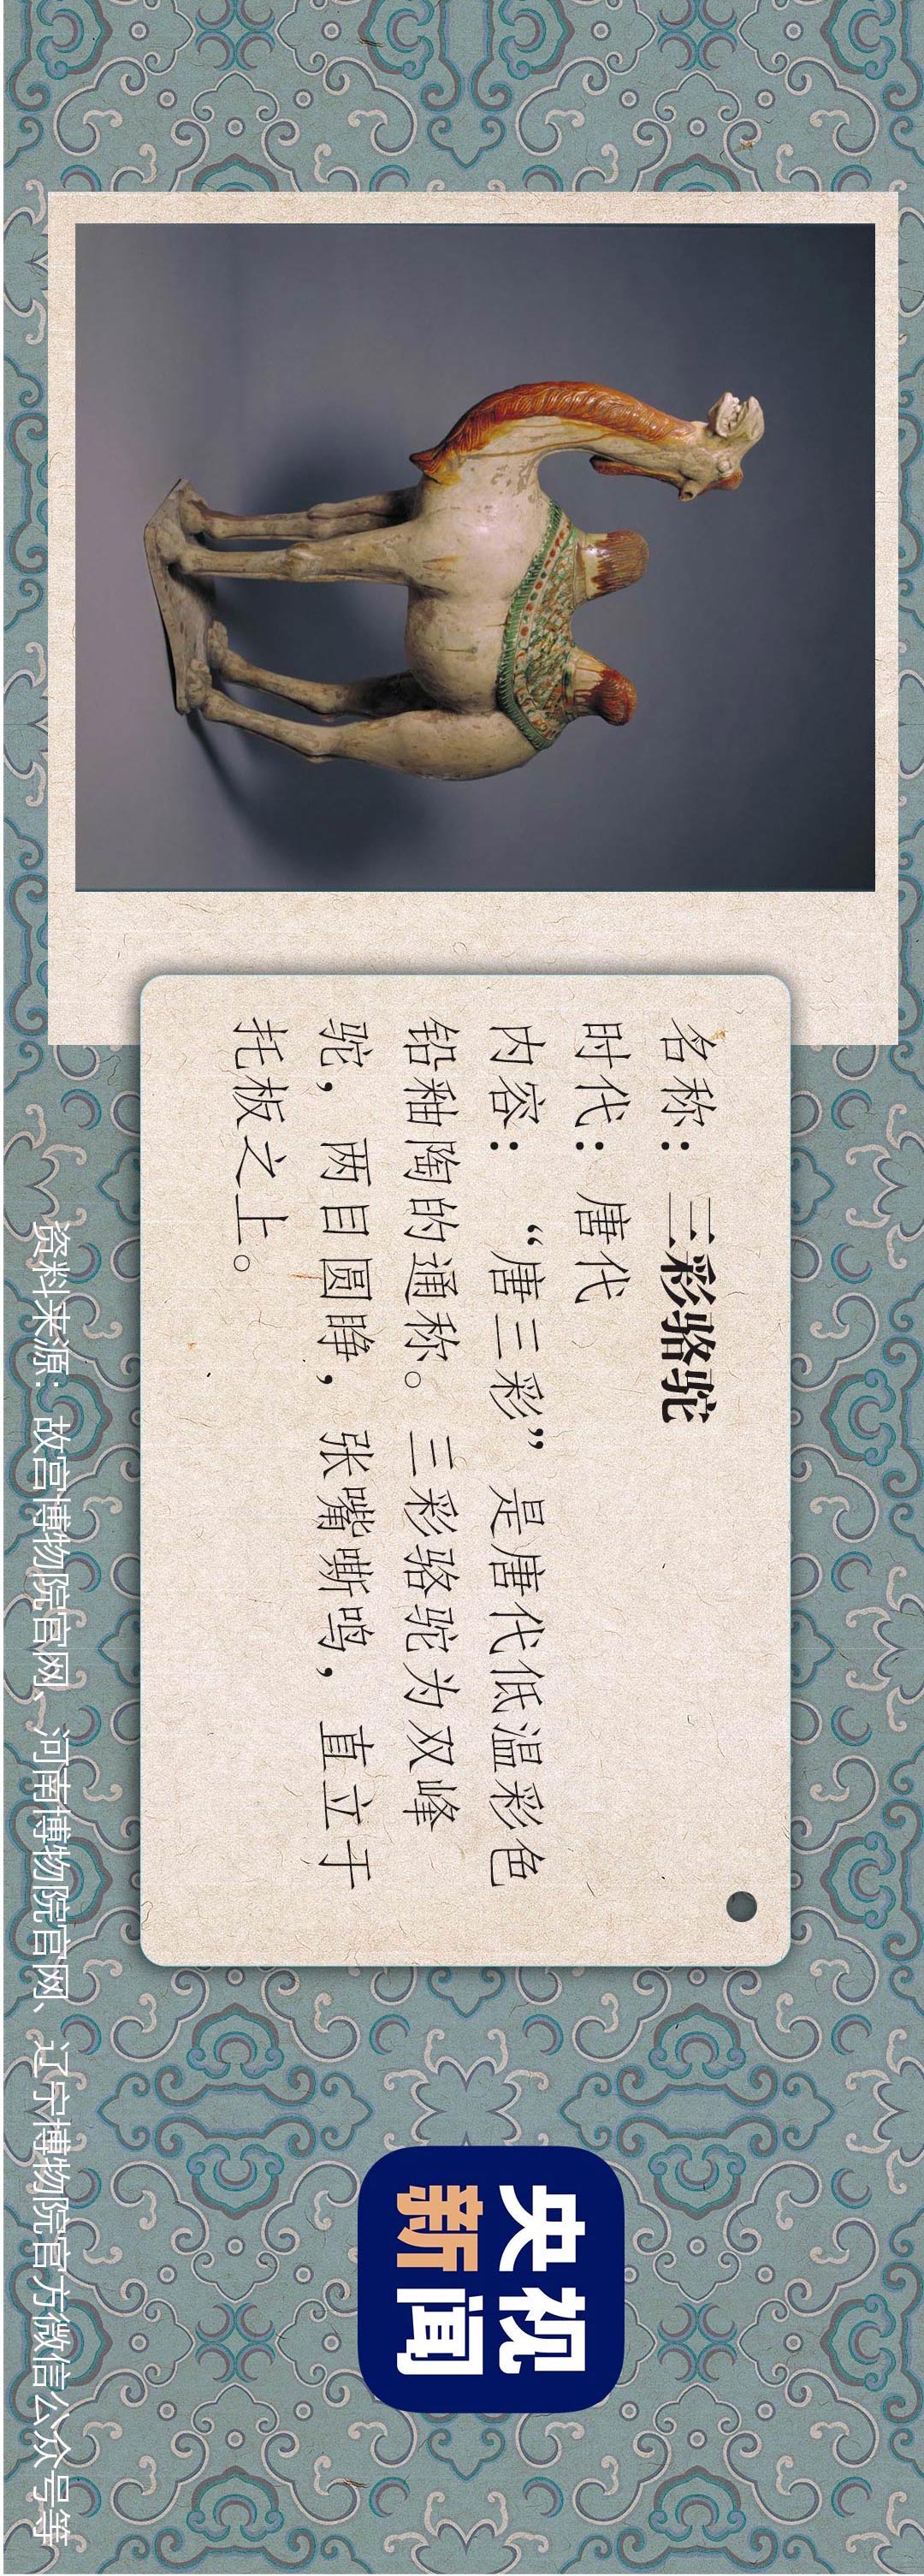 名称：三彩骆驼
时代：唐代
内容：“唐三彩”是唐代低温彩色
铅釉陶的通称。三彩骆驼为双峰
驼，两目圆睁，张嘴嘶鸣，直立于
托板之上。
资料来源：故宫博物院官网、河南博物院官网、辽宁博物院官方微信公众号等
央视
新闻